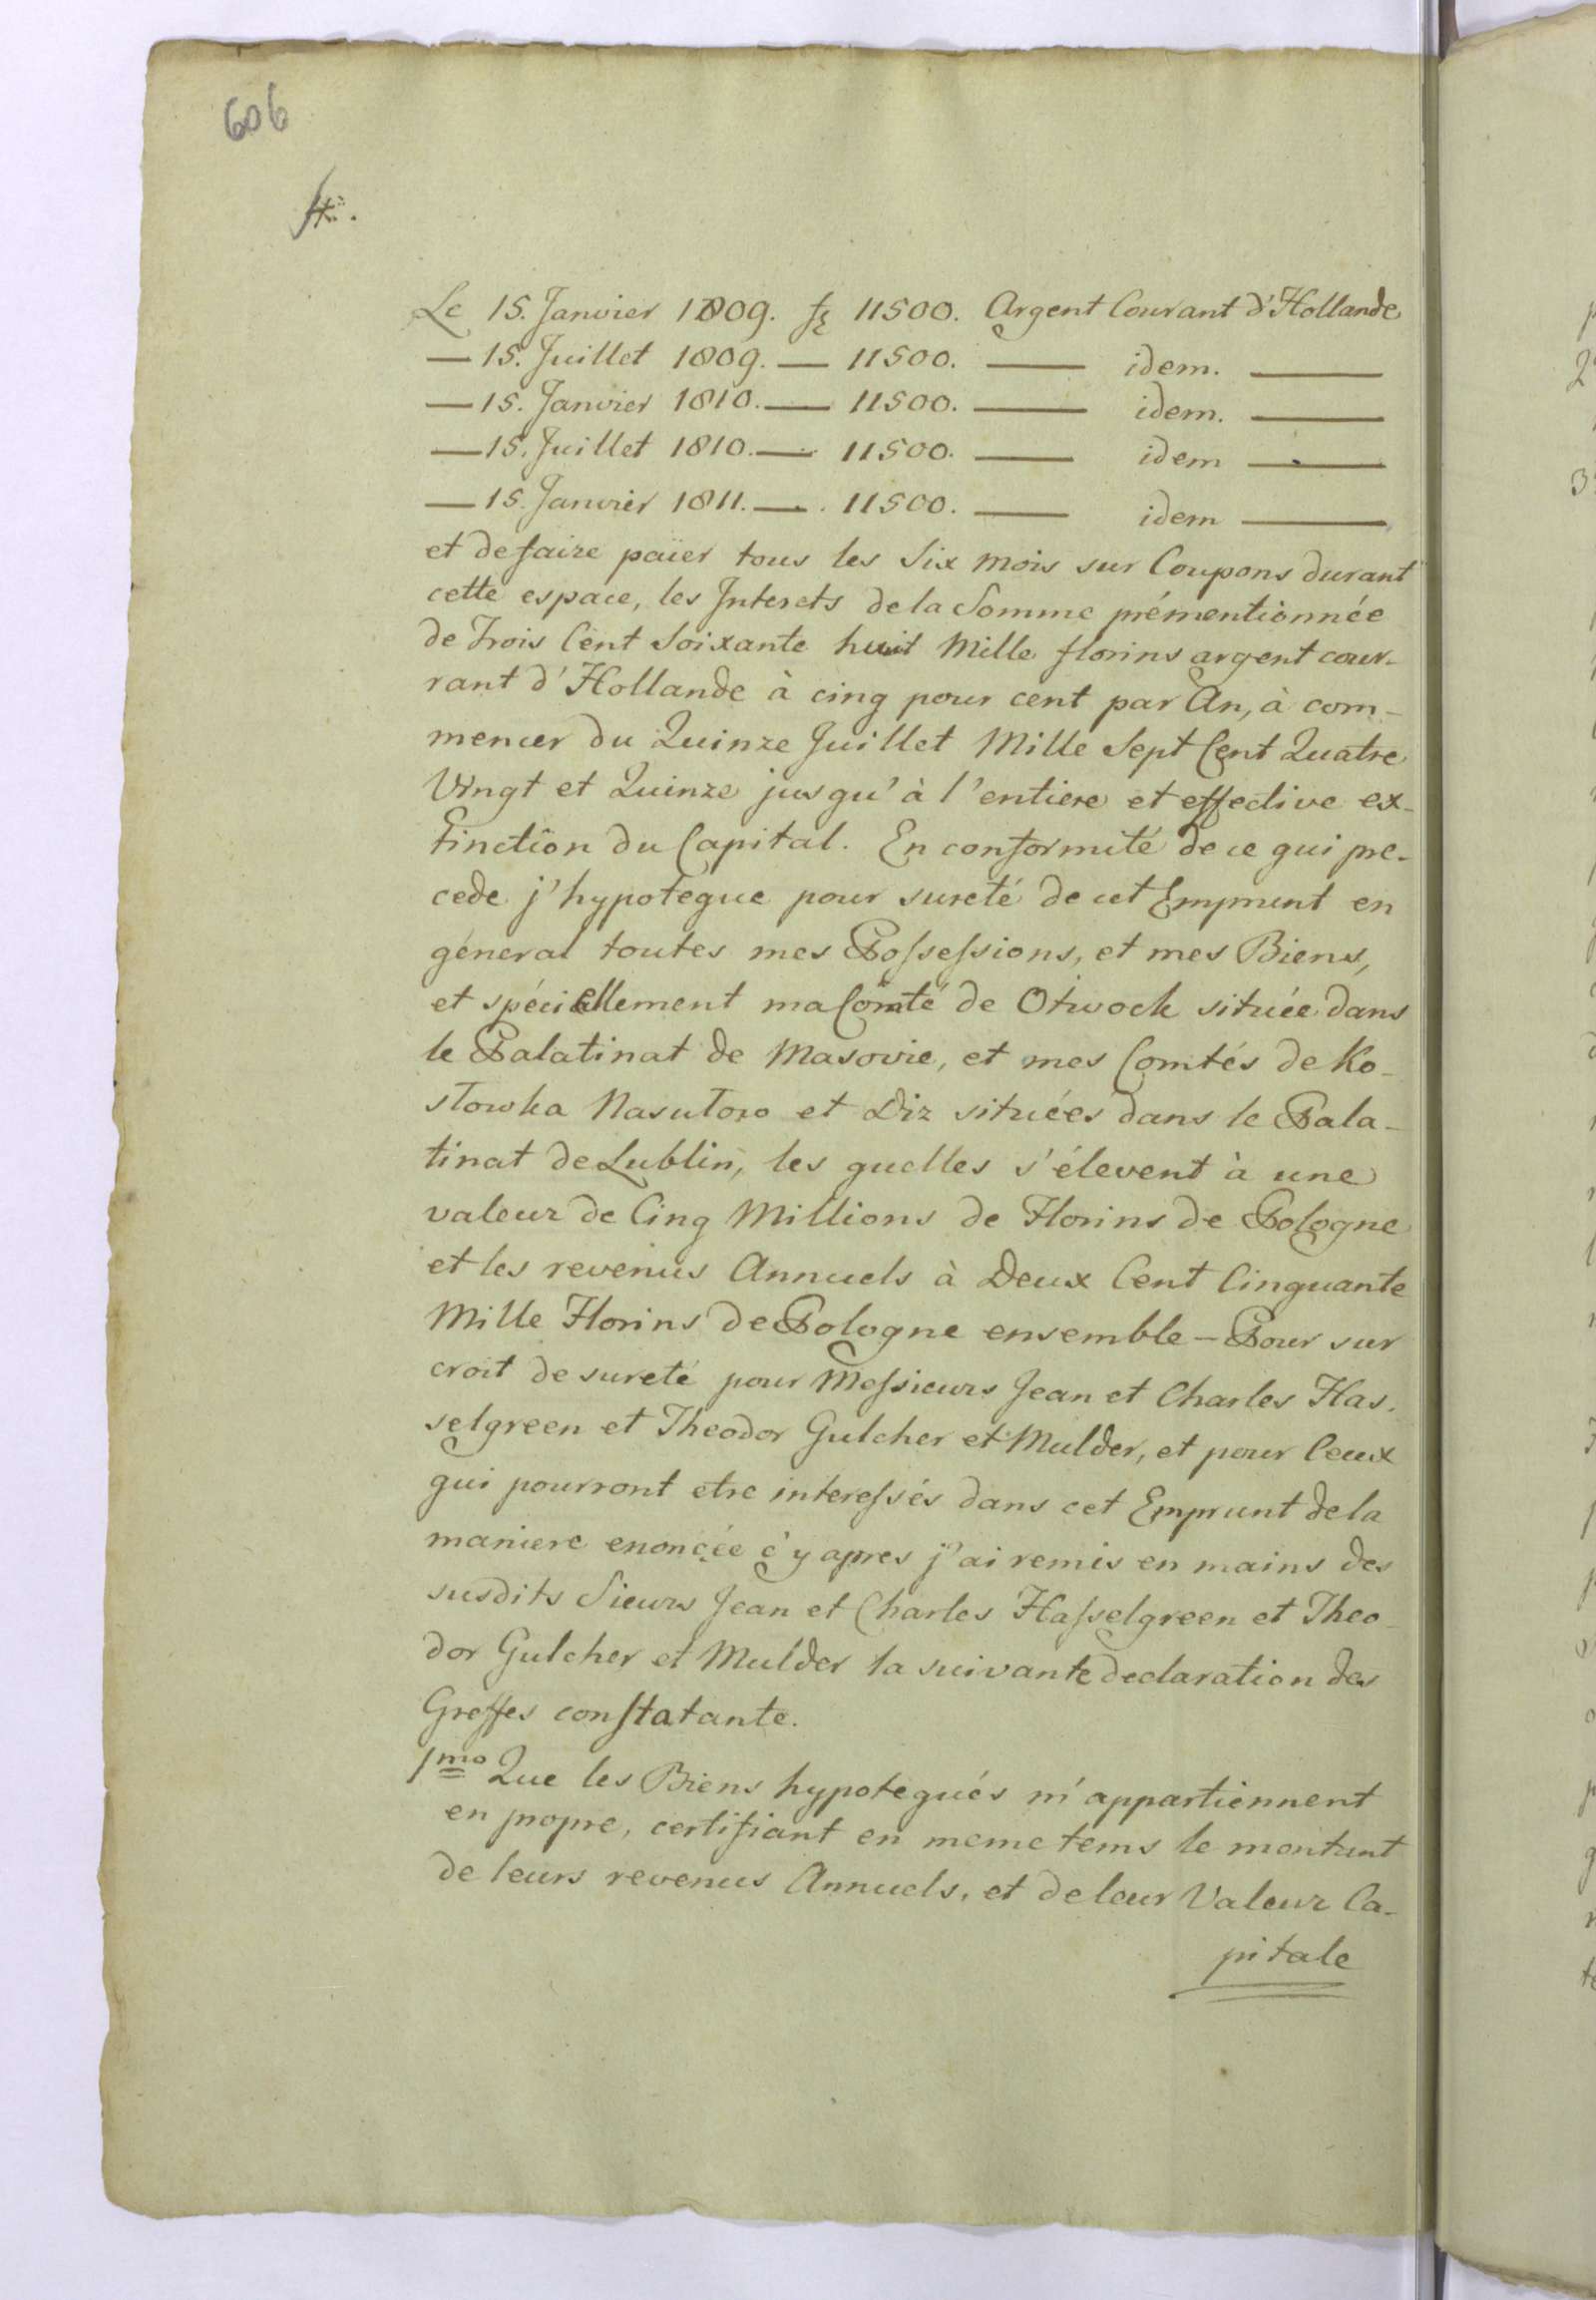 606
Le 15. Janvier 1809. fl 11500. Argent Courant d'Hollande
— 15. Juillet 1809. — 11500. — idem. —
— 15. Janvier 1810. — 11500. — idem. —
— 15. Juillet 1810. — 11500. — idem —
— 15. Janvier 1811. — 11500. — idem —
et de faire païer tous les Six mois sur Coupons durant
cette espace, les Interets de la Somme prémentionnée
de Trois Cent Soixante huit Mille florins argent cour-
rant d'Hollande à cinq pour cent par An, à com-
mencer du Quinze Juillet Mille Sept Cent Quatre
Vingt et Quinze jusqu'à l'entiere et effective ex-
tinction du Capital. En conformité de ce qui pre-
cede j'hypoteque pour sureté de cet Emprunt en
géneral toutes mes Possessions, et mes Biens,
et spéciellement ma Comté de Otwock située dans
le Palatinat de Masovie, et mes Comtés de Ko-
stowka Nasutow et Diz situées dans le Pala-
tinat de Lublin, les quelles s'élevent à une
valeur de Cinq Millions de Florins de Pologne
et les revenus Annuels à Deux Cent Cinquante
Mille Florins de Pologne ensemble — Pour sur
croit de sureté pour Messieurs Jean et Charles Has-
selgreen et Theodor Gulcher et Mulder, et pour Ceux
qui pourront etre interessés dans cet Emprunt de la
maniere enoncée c'y apres j'ai remis en mains des
susdits Sieurs Jean et Charles Hasselgreen et Theo-
dor Gulcher et Mulder la suivante declaration des
Greffes constatante.
1mo Que les Biens hypotequés m'appartiennent
en propre, certifiant en meme tems le montant
de leurs revenus Annuels, et de leur Valeur Ca-
pitale